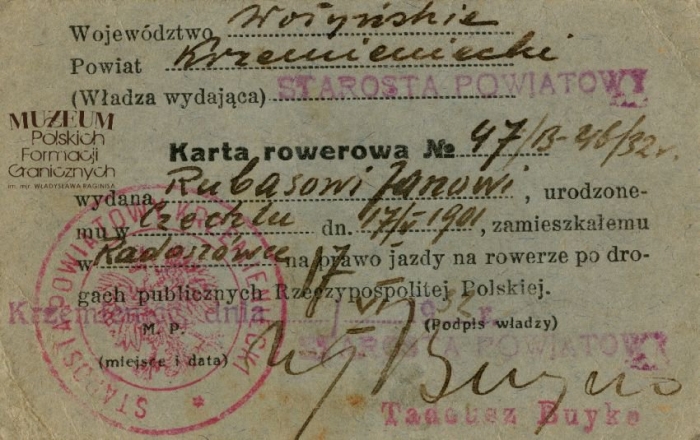 Województwo Wołyńskie
Powiat Krzemieniecki
(Władza wydająca) STAROSTA POWIATOWY
MUZEUM
Polskich
Formacji
Granicznych
im. mjr. WŁADYSŁAWA RAGINISA
Karta rowerowa № 47/B-46/32 r.
wydana Rubasowi Janowi, urodzone-
mu w dn. 17/V 1901, zamieszkałemu
w Radoszówce na prawo jazdy na rowerze po dro-
gach publicznych Rzeczypospolitej Polskiej.
Krzemieniec, dnia 17 VI 1932 r.
M. P. (Podpis władzy)
(miejsce i data) STAROSTA POWIATOWY
STAROSTA POWIATOWY KRZEMIENIECKI
Tadeusz Buyko